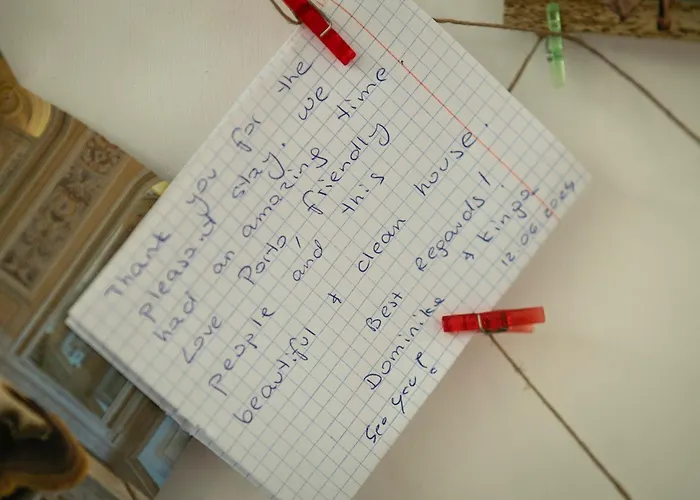 Thank you for the
pleasant stay. We
had an amazing time.
Love Porto, friendly
people and this
beautiful & clean house.
Best regards!
Dominika & Kinga
12.06.2024
See you!